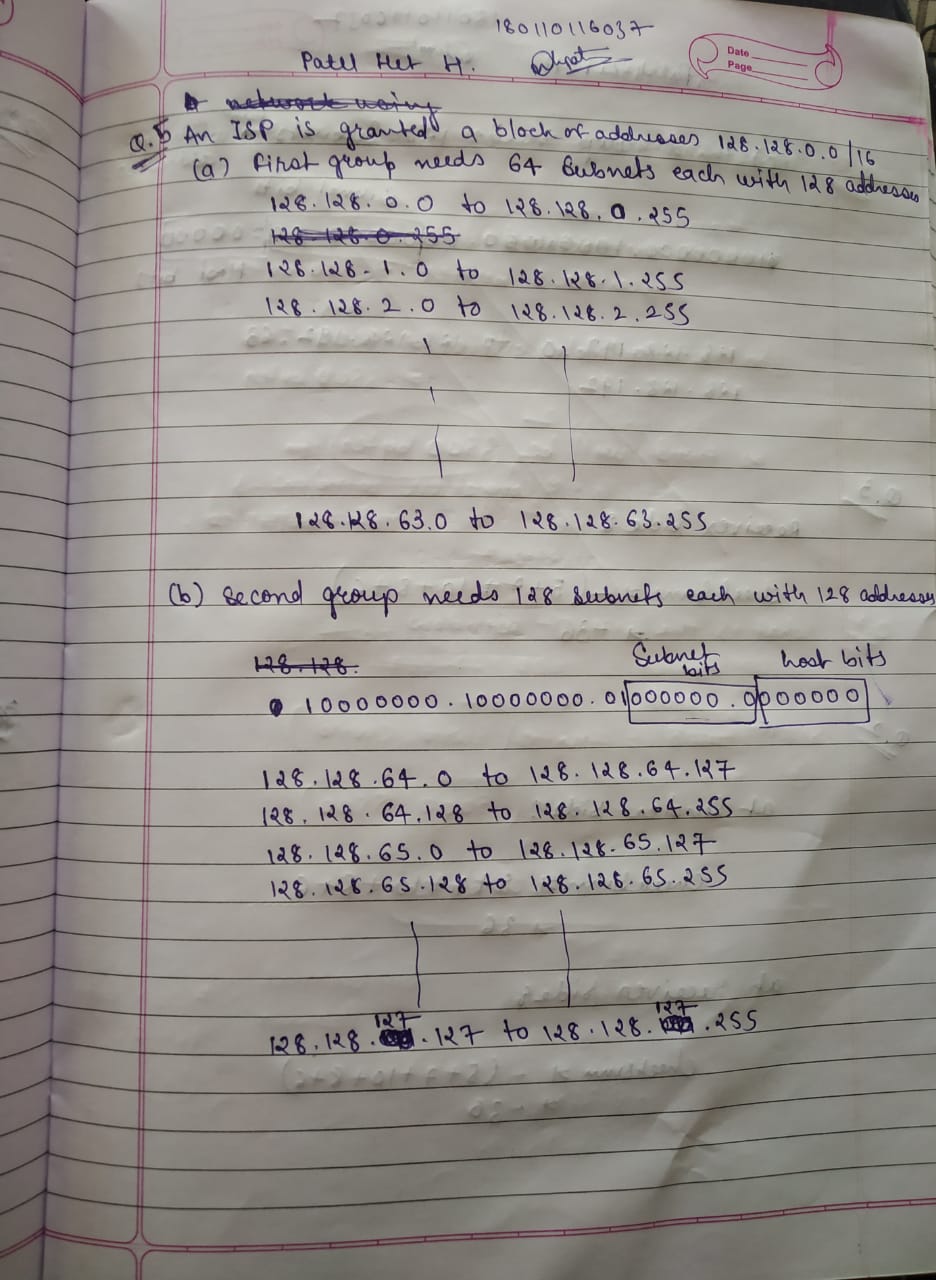 180110116037
Patel Het H.
Date
Page
network using
Q.5 An ISP is granted a block of addresses 128.128.0.0/16
(a) First group needs 64 Subnets each with 128 addresses
128.128.0.0 to 128.128.0.255
128.128.0.255
128.128.1.0 to 128.128.1.255
128.128.2.0 to 128.128.2.255
128.128.63.0 to 128.128.63.255
(b) Second group needs 128 subnets each with 128 addresses
128.128.
Subnet bits host bits
10000000.10000000.01000000.00000000
128.128.64.0 to 128.128.64.127
128.128.64.128 to 128.128.64.255
128.128.65.0 to 128.128.65.127
128.128.65.128 to 128.128.65.255
128.128.127.127 to 128.128.127.255